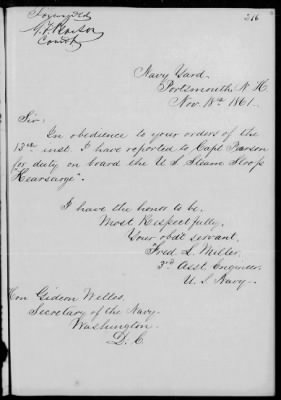 Forwarded
G. F. Pearson
Comdt
216
Navy Yard
Portsmouth N. H.
Nov. 18th 1861
Sir;
In obedience to your orders of the
13th inst. I have reported to Capt Pearson
for duty on board the U S Steam Sloop
"Kearsarge".
I have the honor to be
Most Respectfully
Your obdt servant.
Fred L. Miller
3rd Asst Engineer
U. S Navy.
Hon Gideon Welles
Secretary of the Navy
Washington
D. C